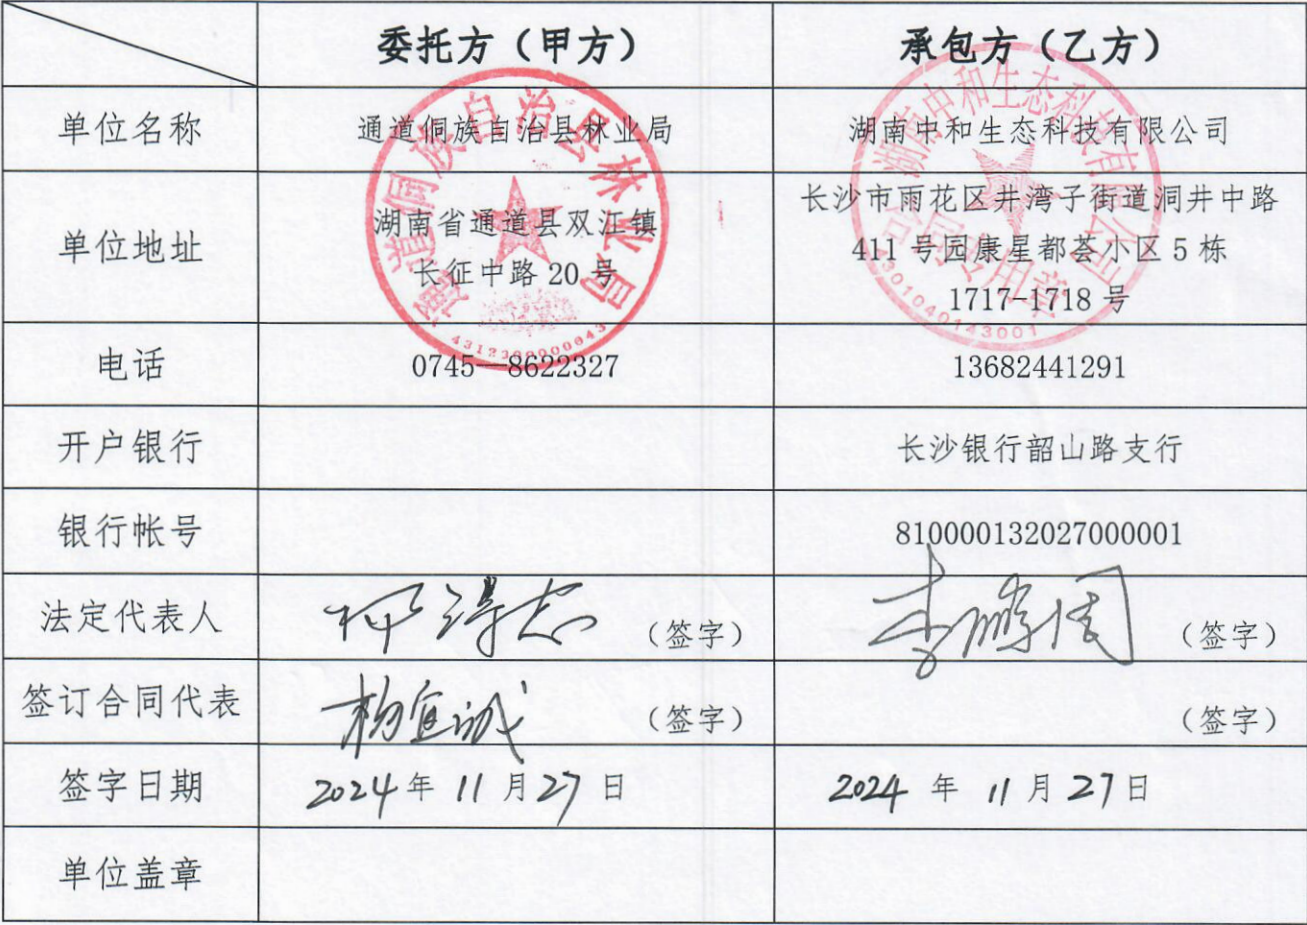 委托方（甲方） 承包方（乙方）
单位名称 通道侗族自治县林业局 湖南中和生态科技有限公司
单位地址 湖南省通道县双江镇 长沙市雨花区井湾子街道洞井中路
长征中路 20 号 411 号园康星都荟小区 5 栋
1717-1718 号
电话 0745—8622327 13682441291
开户银行 长沙银行韶山路支行
银行帐号 810000132027000001
法定代表人 （签字） （签字）
签订合同代表 杨宜诚 （签字） （签字）
签字日期 2024 年 11 月 27 日 2024 年 11 月 27 日
单位盖章
通道侗族自治县林业局
湖南中和生态科技有限公司
合同专用章